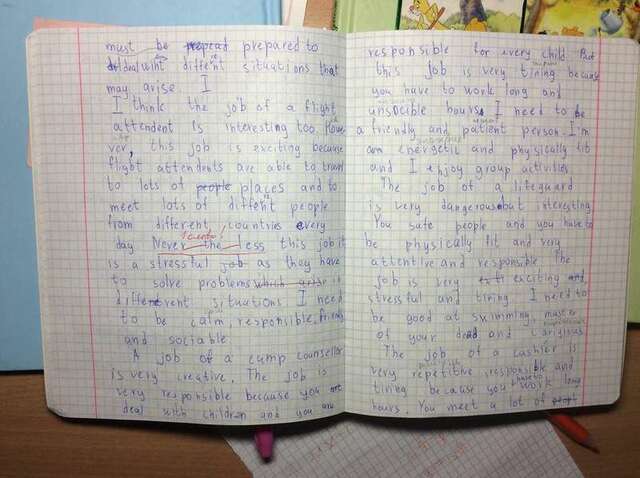 must be prepared to
deal with different situations that
may arise. I
I think the job of a flight
attendent is interesting too. Howe
ver, this job is exciting because
flight attendents are able to travel
to lots of people places and to
meet lots of different people
from different countries every
day. Never the less this job it
is a stressful job as they have
to solve problems which arise in
different situations I need
to be calm, responsible, friendly
and sociable
A job of a camp counseller
is very creative. The job is
very responsible because you are
deal with children and you are
responsible for every child. But
this job is very tiring because
you have to work long and
unsocible hours. I need to be
a friendly and patient person. I'm
am energetic and physically fit
and I enjoy group activities
The job of a lifeguard
is very dangerous but interesting
You safe people and you have to
be physically fit and very
attentive and responsible The
job is very exciting and
stressful and tiring I need to
be good at swimming, master
of your and
The job of a cashier is
very repetitive irresponsible and
tiring because you work long
hours. You meet a lot of people